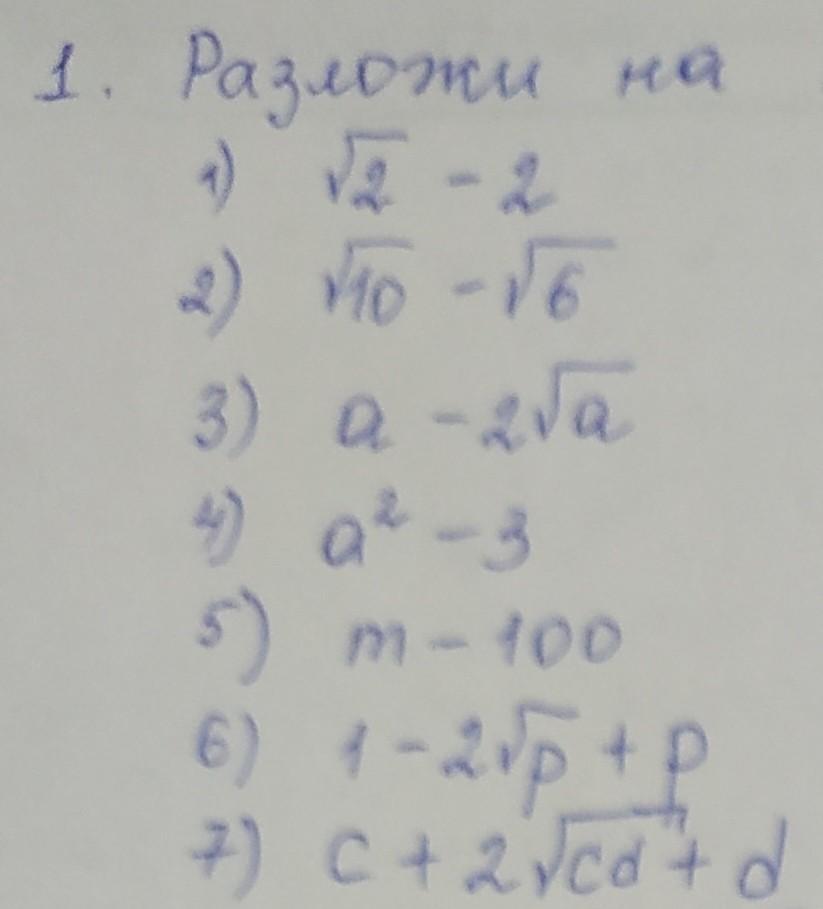 1. Разложи на
1) √2 - 2
2) √10 - √6
3) a - 2√a
4) a² - 3
5) m - 100
6) 1 - 2√p + p
7) c + 2√cd + d